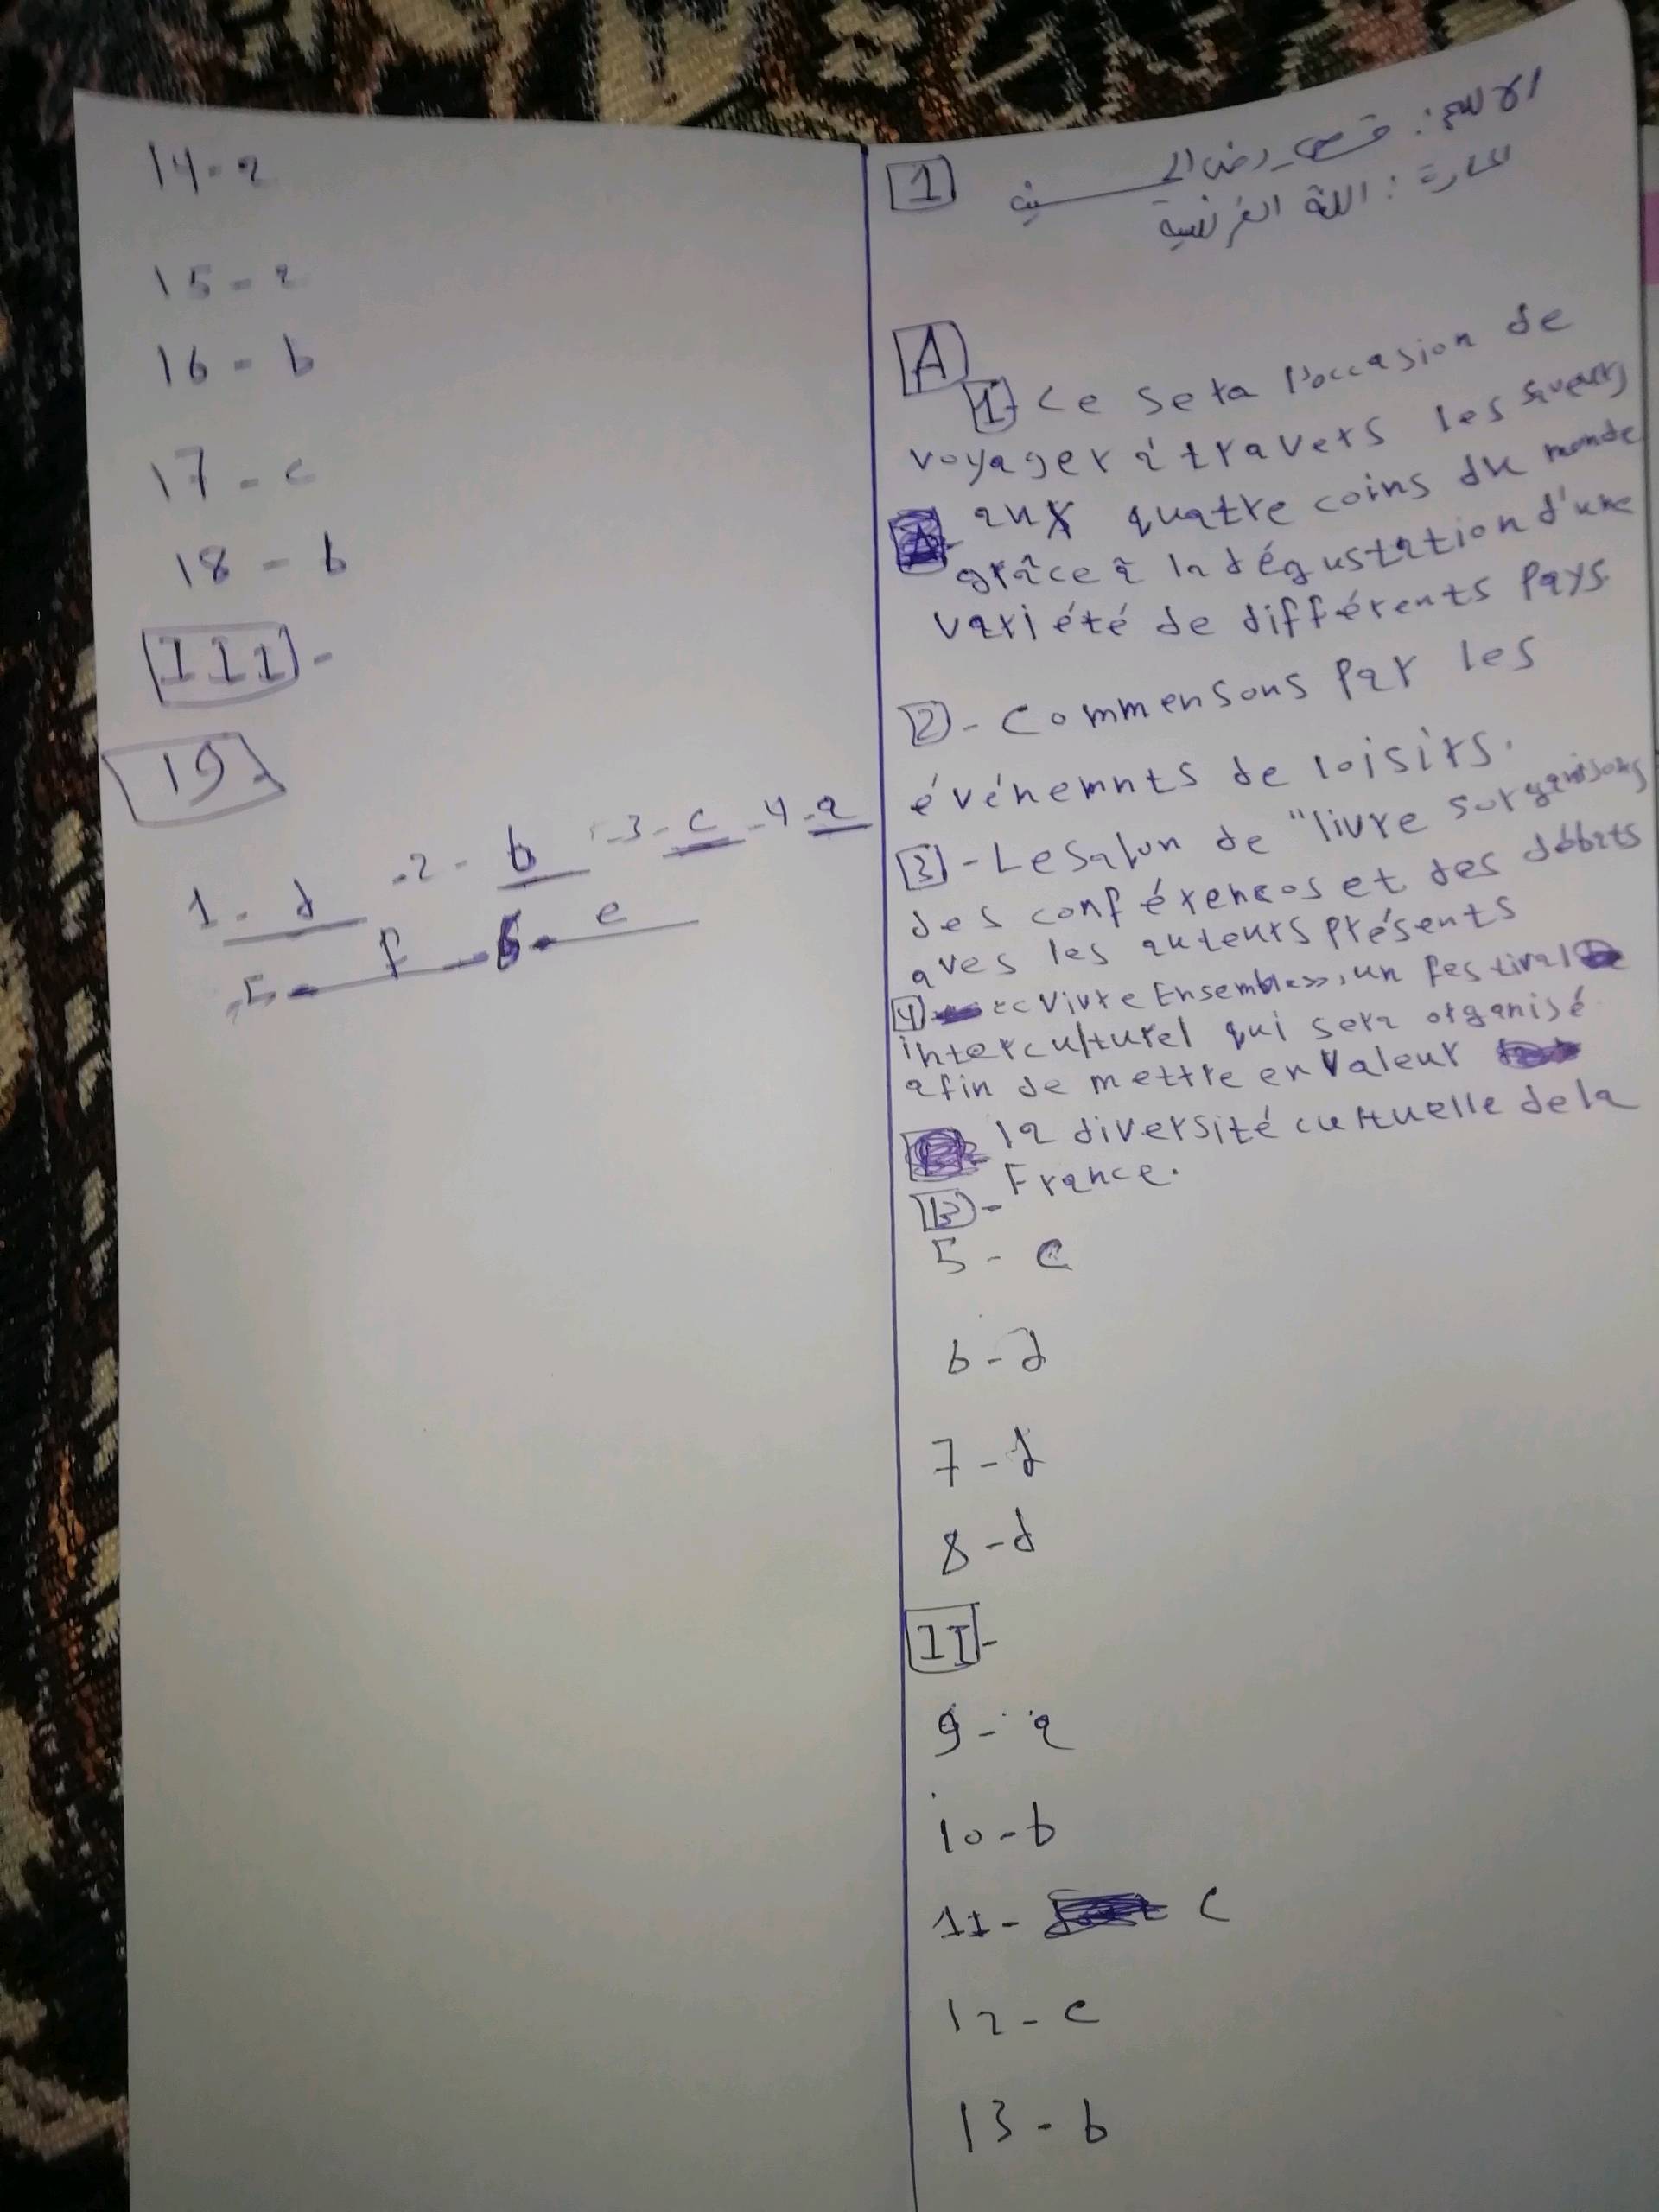 1
الاسم: قصي رضى الحسين
المادة: اللغة الفرنسية
A
1- Ce sera l'occasion de
voyager à travers les saveurs
aux quatre coins du monde
grâce à la dégustation d'une
variété de différents pays.
2- Commensons par les
événemnts de loisirs.
3- Le salon de "livre sur organisons
des conférences et des débats
aves les auteurs présents
4- «Vivre Ensemble», un festival
interculturel qui sera organisé
afin de mettre en valeur
la diversité cultuelle de la
France.
B-
5- c
6-d
7-d
8-d
II-
9- a
10-b
11- c
12- c
13- b
14- a
15- a
16- b
17- c
18- b
III-
19-
1- d -2- b -3- c -4- a
-5- f -6- e